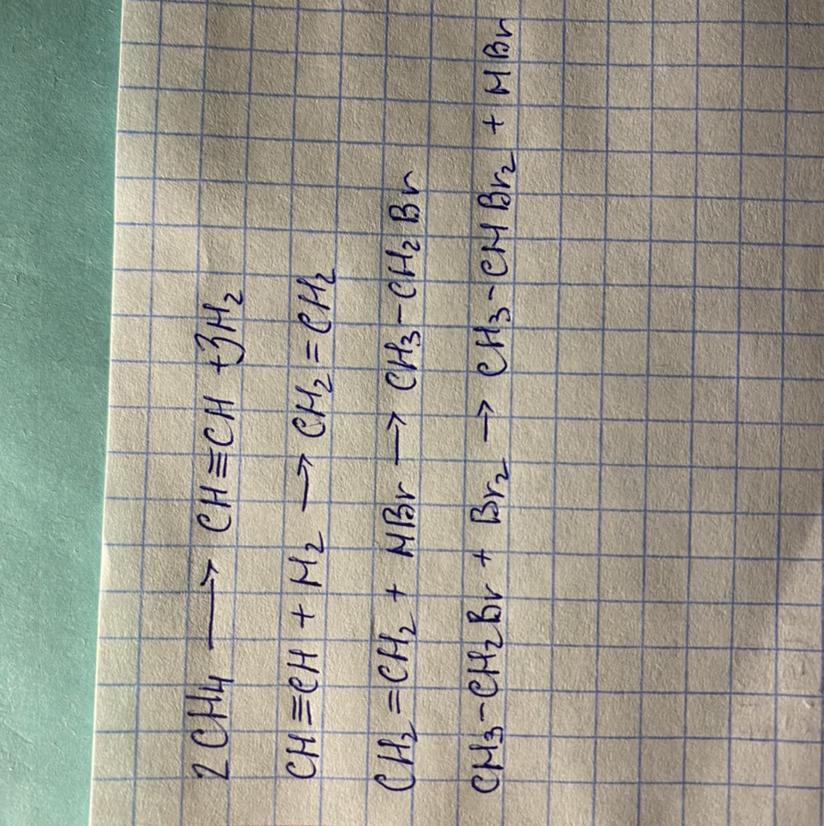 2CH₄ ⟶ CH≡CH + 3H₂
CH≡CH + H₂ ⟶ CH₂=CH₂
CH₂=CH₂ + HBr ⟶ CH₃-CH₂Br
CH₃-CH₂Br + Br₂ → CH₃-CHBr₂ + HBr